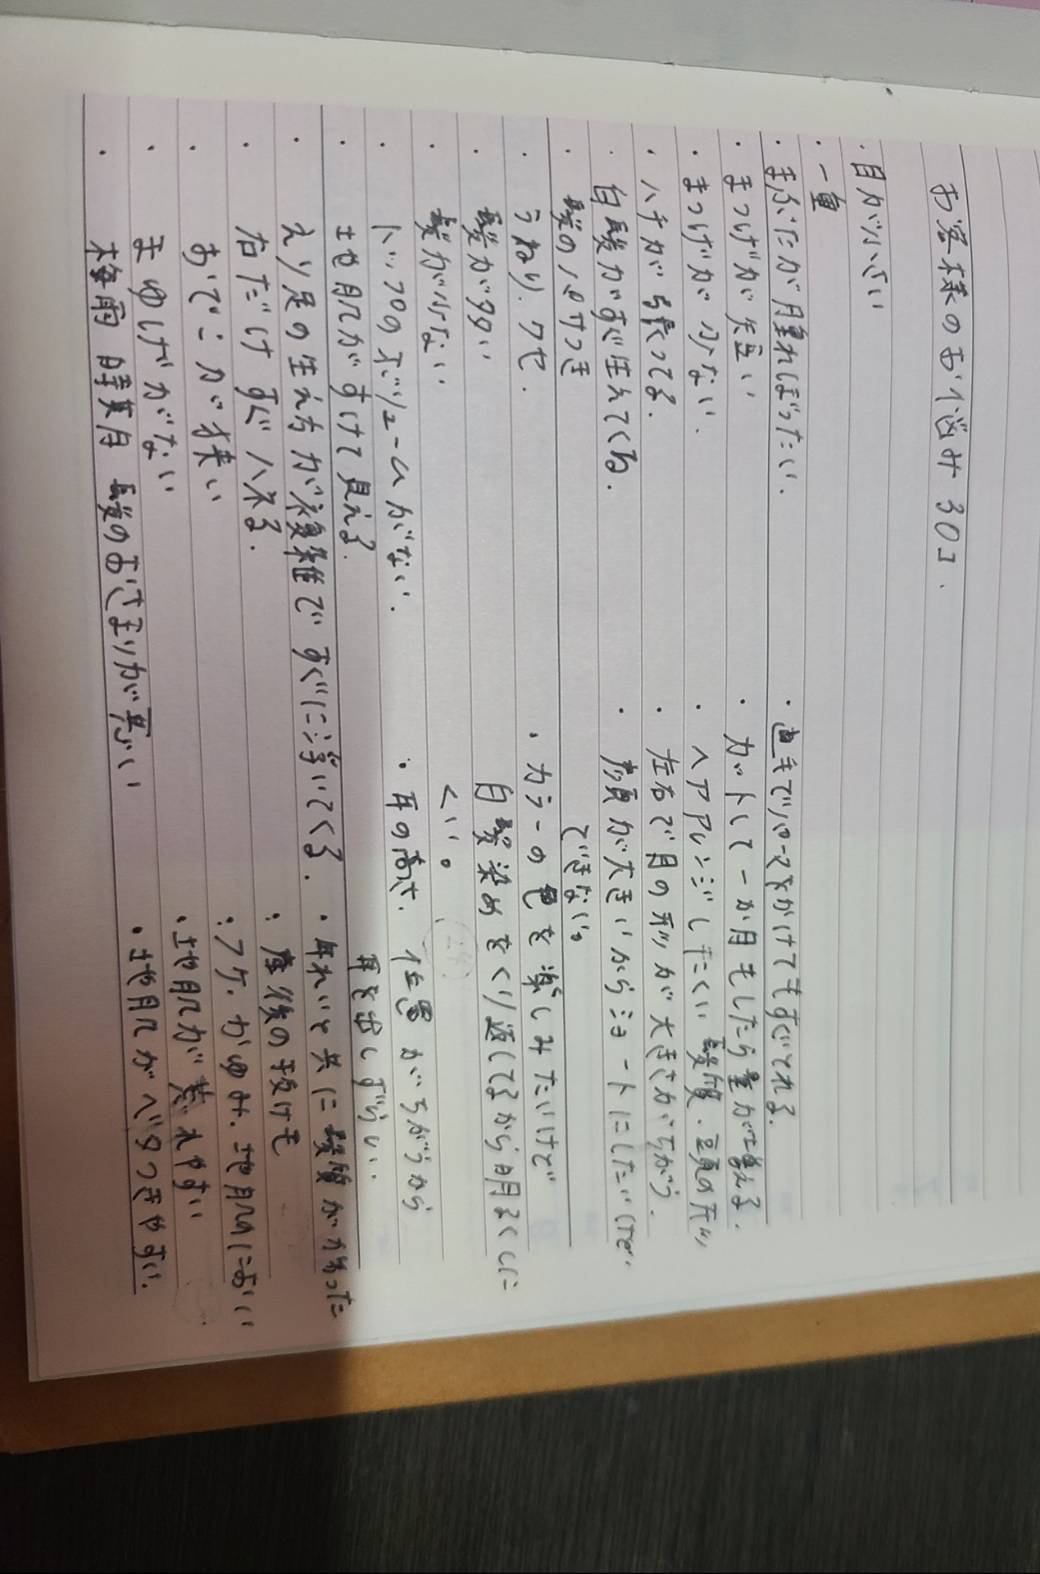 お客様のお悩み 30コ.
・目が小さい
・一重
・まぶたが腫れぼったい.
・まつげが短い
・まつげが少ない.
・ハチが張ってる.
・白髪がすぐ生えてくる.
・髪のパサつき
・うねり.クセ.
・髪が多い
・髪が少ない
・トップのボリュームがない.
・地肌がすけて見える.
・えり足の生え方が複雑ですぐに浮いてくる.
・右だけすぐハネる.
・おでこが狭い
・まゆげがない
・梅雨時期髪のおさまりが悪い
・直毛でパーマをかけてもすぐとれる.
・カットして一か月もしたら量が増える.
・ヘアアレンジしにくい髪質.頭の形
・左右で目の形が大きさがちがう.
・頭が大きいからショートにしたいけど
できない。
・カラーの色を楽しみたいけど
白髪染めをくり返してるから明るくしに
くい。
・耳の高さ.位置がちがうから
耳を出しずらい.
・年れいと共に髪質がかわった
・産後の抜け毛
・フケ.かゆみ.地肌のにおい
・地肌が荒れやすい
・地肌がベタつきやすい.